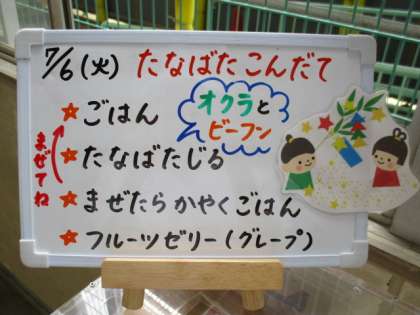 7/6(火) たなばたこんだて
ごはん
オクラと
ビーフン
たなばたじる
まぜてね
まぜたらかやくごはん
フルーツゼリー(グレープ)